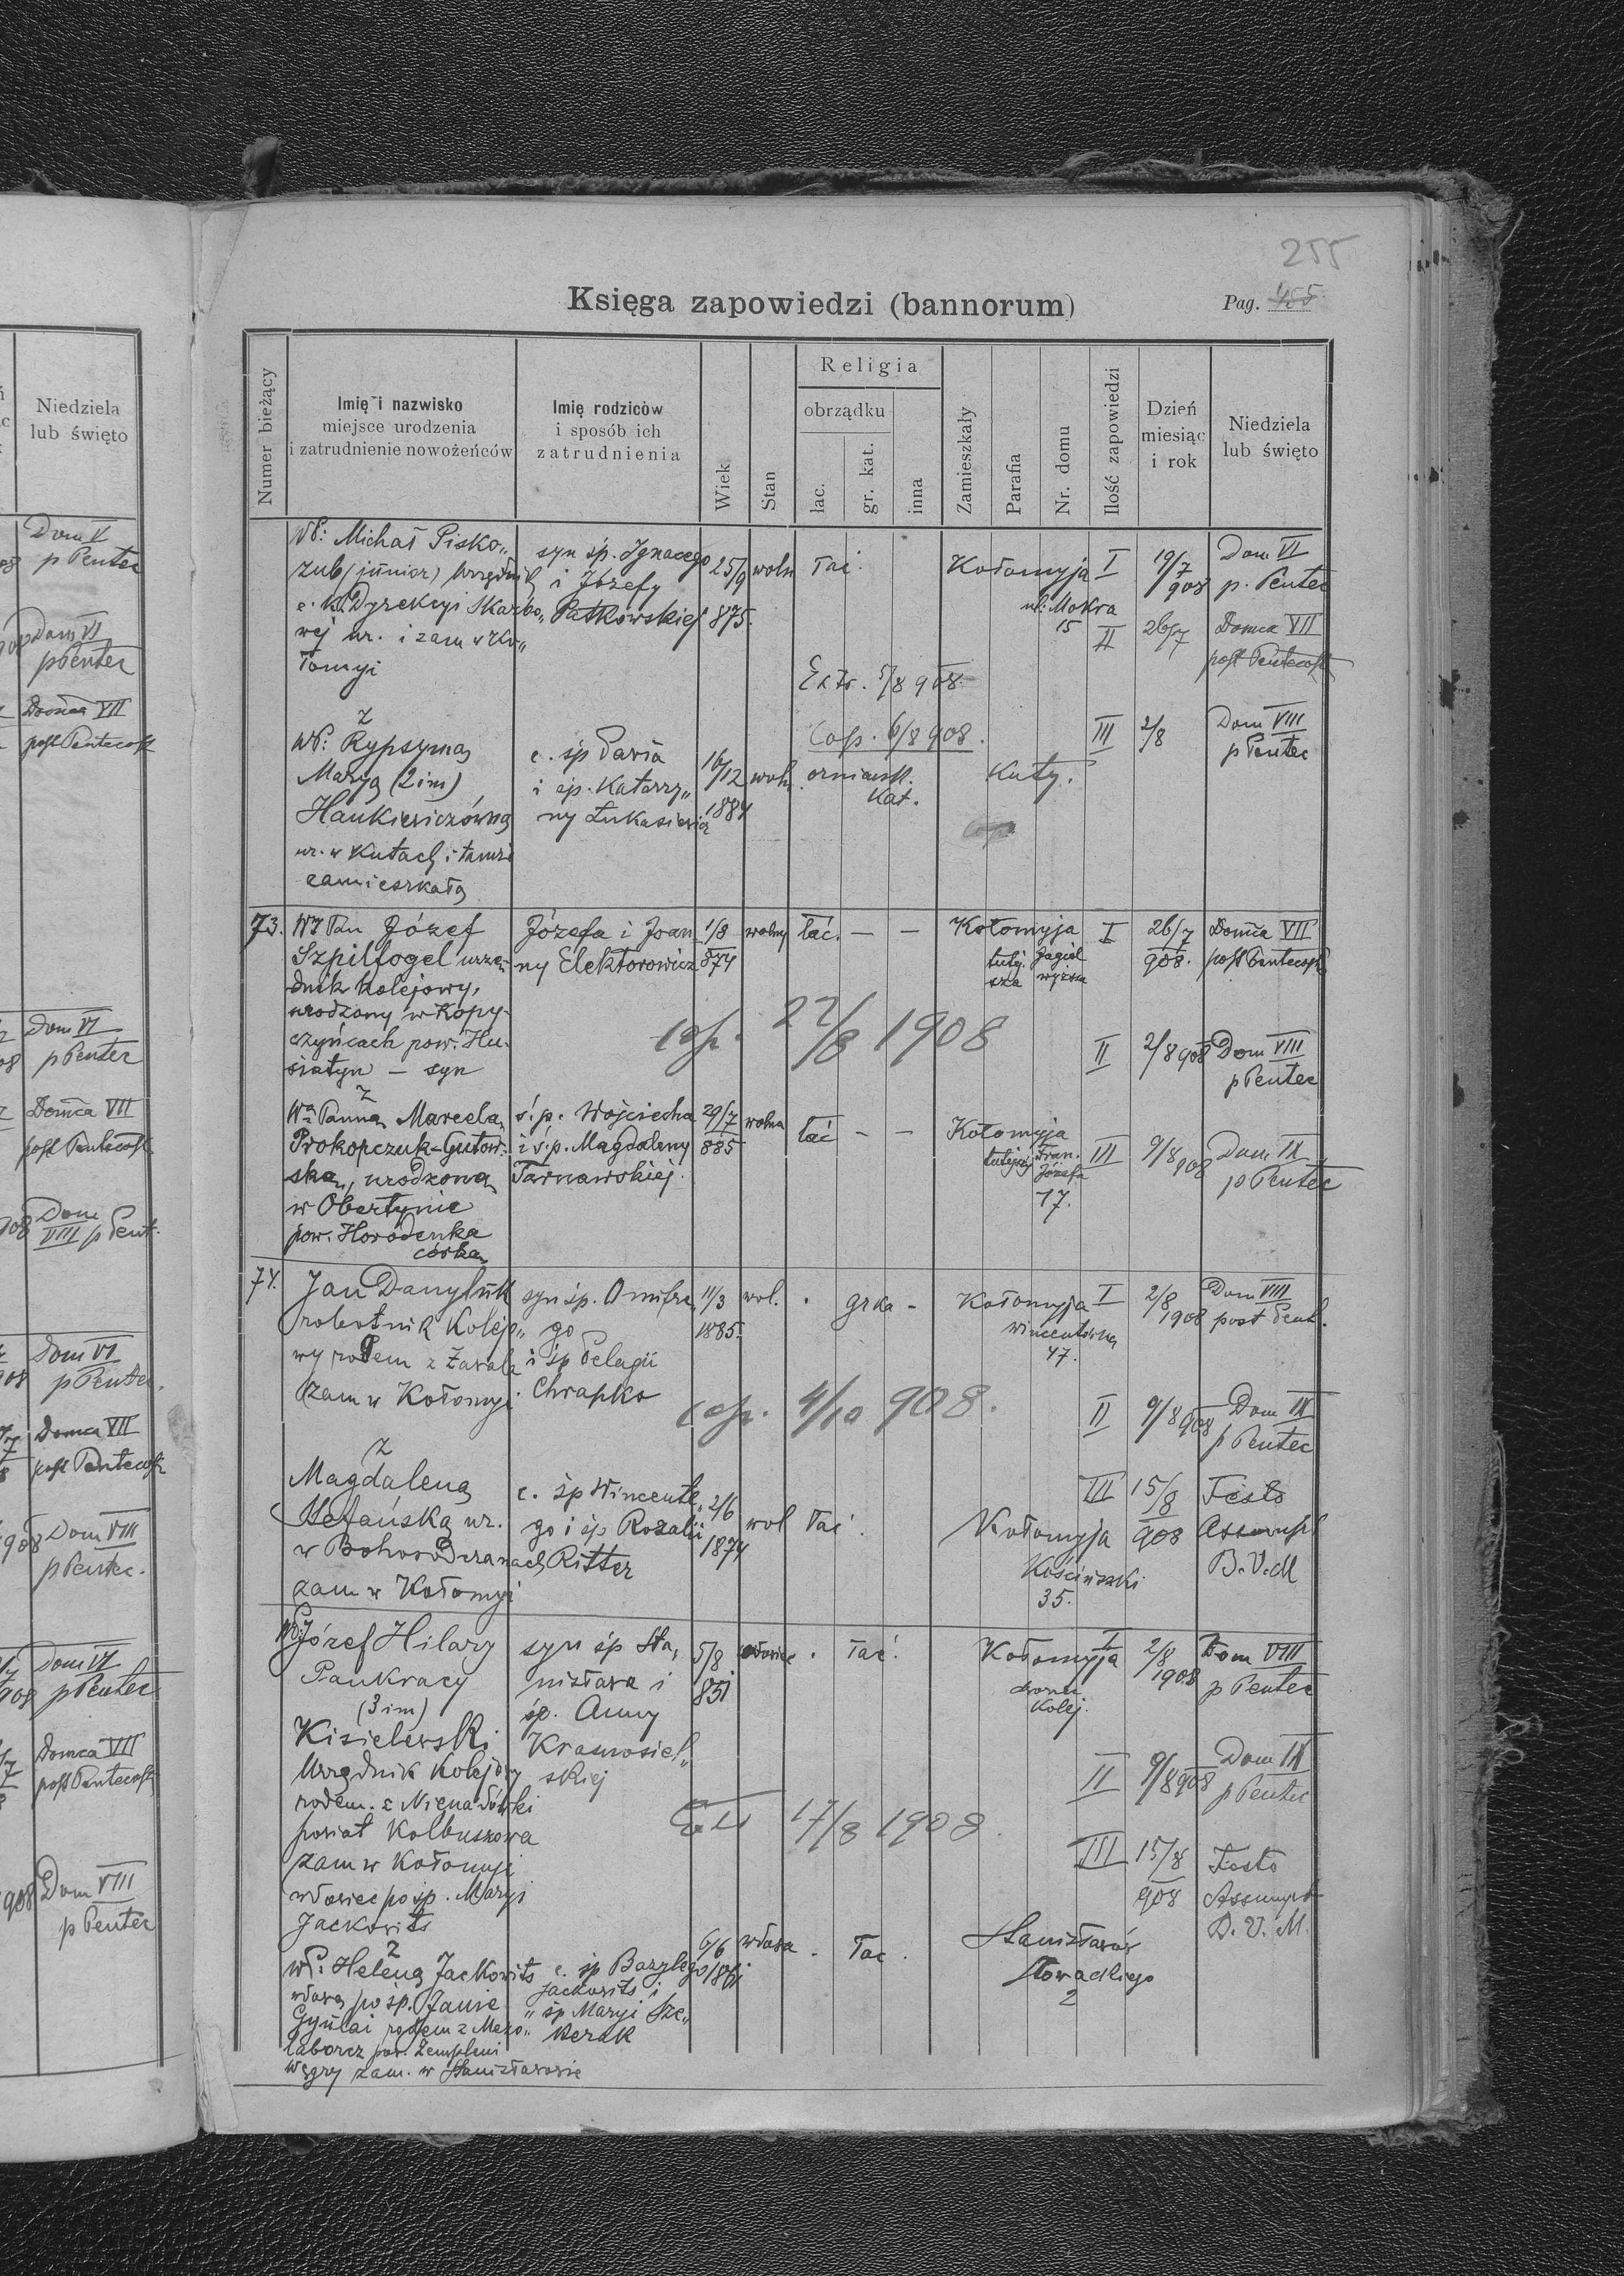 255
Księga zapowiedzi (bannorum)
Pag. 455
Numer bieżący
Imię i nazwisko
miejsce urodzenia
i zatrudnienie nowożeńców
Imię rodziców
i sposób ich
zatrudnienia
Wiek
Stan
Religia
obrządku
łac.
gr. kat.
inna
Zamieszkały
Parafia
Nr. domu
Ilość zapowiedzi
Dzień
miesiąc
i rok
Niedziela
lub święto
Niedziela
lub święto
Dom V
p Pentec
Dom VI
p Pentec
Domca VII
post Pentecost
Dom VI
p Pentec
Domca VII
post Pentecost
Dom
VIII p Pent.
Dom VI
p Pentec.
Domca VII
post Pentecost
Dom VIII
p Pentec.
Dom VI
p Pentec
Domca VII
post Pentecost
Dom VIII
p Pentec
WP: Michał Pisko„
zub (junior) Urzędnik
c. k. Dyrekcyi Skarbo„
wej ur. i zam w Ko„
łomyi
syn śp. Ignacego
i Józefy
Patkowskiej
25/9
875.
woln
łać.
Kołomyja
ul: Mokra
15
I 19/7 908 Dom VI
p. Pentec
II 26/7 Domca VII
post Pentecost
Extr. 5/8 908
Cop. 6/8 908.
III 2/8 Dom VIII
p Pentec
z
WP: Rypsyma
Marya (2 im)
Hankiewiczówna
ur. w Kutach i tamże
zamieszkała
c. śp Dawia
i śp. Katarzy„
ny Łukasiewicz
16/12
1884
woln
ormiańsk.
kat.
Kuty.
73.
WY Pan Józef
Szpilfogel urzę-
dnik kolejowy,
urodzony w Kopy-
czyńcach pow. Hu-
siatyn — syn
Józefa i Joan
ny Elektorowicz
1/8
874
wolny
łać. — —
Kołomyja
tutej- Jagiel
sza wyższa
I 26/7 908. Domca VII
post Pentecost
cop. 22/8 1908
II 2/8 908 Dom VIII
p Pentec
z
Wa Panna Marcela
Prokopczuk-Gutow-
ska, urodzona
w Obertynie
pow. Horodenka
córka
ś. p. Wojciecha
i ś. p. Magdaleny
Tarnawskiej.
29/7
885
wolna
łać — —
Kołomyja
tutejszej Fran.
Józefa
17.
III 9/8 908 Dom IX
p Pentec
74.
Jan Danyluk
robotnik kolejo„
wy rodem z Zawale
zam w Kołomyi
syn śp. Onufre„
go
i śp Pelagii
Chrapko
11/3
1885.
wol.
grka -
Kołomyja
wincentówna
47.
I 2/8 1908 Dom VIII
post Pent.
cop. 4/10 908.
II 9/8 908 Dom IX
p Pentec
z
Magdalena
Stefańska ur.
w Bohorodczanach
zam w Kołomyi
c. śp Wincente„
go i śp Rozalii
Ritter
2/6
1874
wol
łać.
Kołomyja
Kościuszki
35.
III 15/8 908 Festo
Assumpt
B. V. M
WP: Józef Hilary
Pankracy
(3 im)
Kisielewski
Urzędnik kolejowy
rodem. z Nienadówki
powiat Kolbuszowa
zam w Kołomyi
wdowiec po śp. Maryi
Jackowits
syn śp Sta„
nisława i
śp. Anny
Krasnosiel„
skiej
5/8
851
wdowiec
łać.
Kołomyja
dworzec
kolej.
I 2/8 1908 Dom VIII
p Pentec
II 9/8 908 Dom IX
p Pentec
17/8 1908
III 15/8 908 Festo
Assumpt
B. V. M.
z
WP: Helena Jackowits
wdowa po śp. Janie
Gyulai rodem z Mezo„
laborcz pow. Zempleni
Węgry zam. w Stanisławowie
c. śp Bazylego
Jackowits i
śp Maryi Sze„
kerak
6/6
1861
wdowa
łac.
Stanisławów
Słowackiego
2